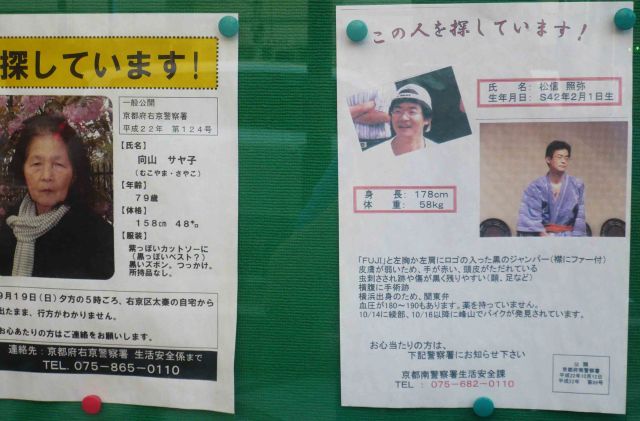 探しています!
一般公開
京都府右京警察署
平成22年 第124号
【氏名】
向山 サヤ子
（むこやま・さやこ）
【年齢】
79歳
【体格】
158㎝ 48㌔
【服装】
紫っぽいカットソーに
（黒っぽいベスト？）
黒いズボン。つっかけ。
所持品なし。
9月19日（日）夕方の5時ころ、右京区太秦の自宅から
出たまま、行方がわかりません。
お心あたりの方はご連絡をお願いします。
連絡先：京都府右京警察署 生活安全係まで
TEL. 075-865-0110
この人を探しています!
氏 名: 松儘 照弥
生年月日: S42年2月1日生
身 長: 178cm
体 重: 58kg
「FUJI」と左胸か左肩にロゴの入った黒のジャンパー（襟にファー付）
皮膚が弱いため、手が赤い、頭皮がただれている
虫刺され跡や傷が黒く残りやすい（顔、足など）
横腹に手術跡
横浜出身のため、関東弁
血圧が180～190もあります。薬を持っていません。
10/14に綾部、10/16以降に峰山でバイクが発見されています。
お心当たりの方は、
下記警察署にお知らせ下さい
京都南警察署生活安全課
TEL : 075-682-0110
公 開
京都府南警察署
平成22年10月12日
平成22年 第